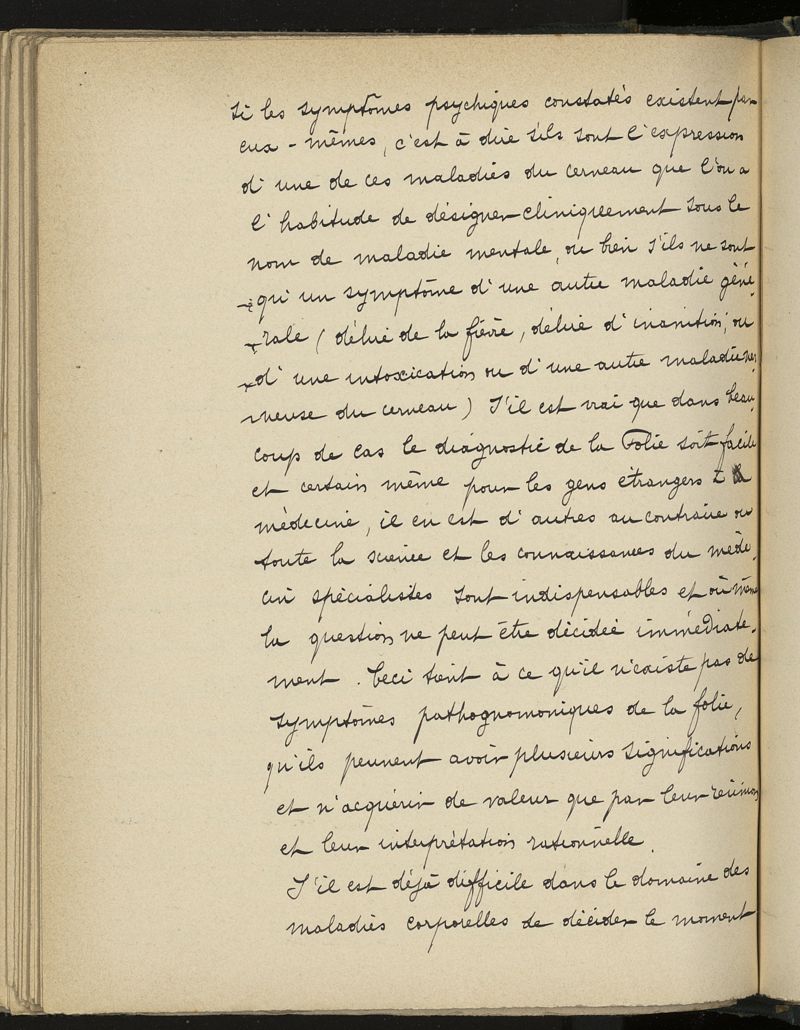 si les symptômes psychiques constatés existent par
eux-mêmes, c'est à dire s'ils sont l'expression
d'une de ces maladies du cerveau que l'on a
l'habitude de désigner cliniquement sous le
nom de maladie mentale, ou bien s'ils ne sont
qu'un symptôme d'une autre maladie géné-
rale (délire de la fièvre, délire d'inanition, ou
d'une intoxication ou d'une autre maladie ner-
veuse du cerveau) S'il est vrai que dans beau-
coup de cas le diagnostic de la Folie soit facile
et certain même pour les gens étrangers à la
médecine, il en est d'autres au contraire ou
toute la science et les connaissances du méde-
cin spécialistes sont indispensables et où même
la question ne peut être décidée immédiate-
ment. Ceci tient à ce qu'il n'existe pas de
symptômes pathognomoniques de la folie,
qu'ils peuvent avoir plusieurs significations
et n'acquérir de valeur que par leur réunion
et leur interprétation rationnelle.
S'il est déjà difficile dans le domaine des
maladies corporelles de décider le moment